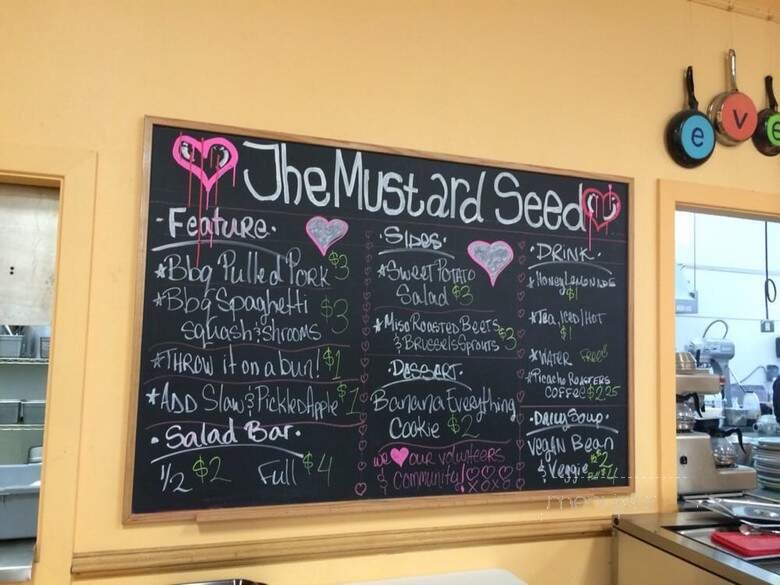 The Mustard Seed
· Feature ·
* Bbq Pulled Pork $3
* Bbq Spaghetti
squash & shrooms $3
* THROW it on a bun! $1
* ADD Slaw & Pickled Apple $1
· Salad Bar ·
1/2 $2 Full $4
· SIDES ·
* SWEET POTATO
Salad $3
* Miso ROASTED BEETS
& BRUSSELS SPROUTS $3
· DESSERT ·
Banana Everything
Cookie $2
we our volunteers
& community!
· DRINK ·
* HONEY LEMONADE
$1
* Tea, Iced/HOT
$1
* WATER FREE
* Picacho ROASTERS
COFFEE $2.25
· DAILY Soup ·
VEGAN Bean
& Veggie $2
$4
e v e